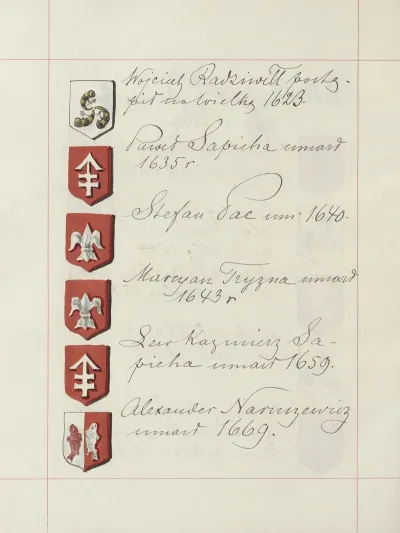 Wojciech Radziwiłł postą-
pił na Wielką 1623.
Paweł Sapieha umarł
1635 r.
Stefan Pac um: 1640.
Marcyan Tryzna umarł
1643 r
Lew Kazimierz Sa-
pieha umarł 1659.
Alexander Naruszewicz
umarł 1669.